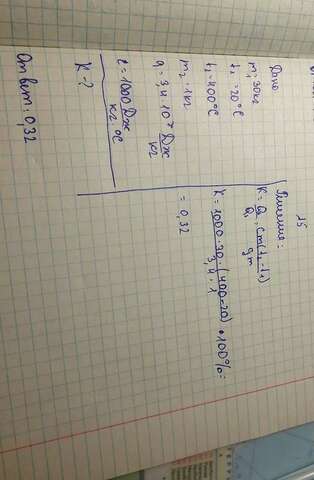 15
Дано
m₁ = 30кг
t₁ = 20°C
t₂ = 400°C
m₂ = 1кг
q = 3,4 · 10⁷ Дж/кг
c = 1000 Дж/кг · °C
K - ?
Решение:
K = Q₂/Q₁ = Cm(t₂ - t₁)/qm
K = 1000 · 30 · (400 - 20)/3,4 · 1 · 100% =
= 0,32
Ответ: 0,32